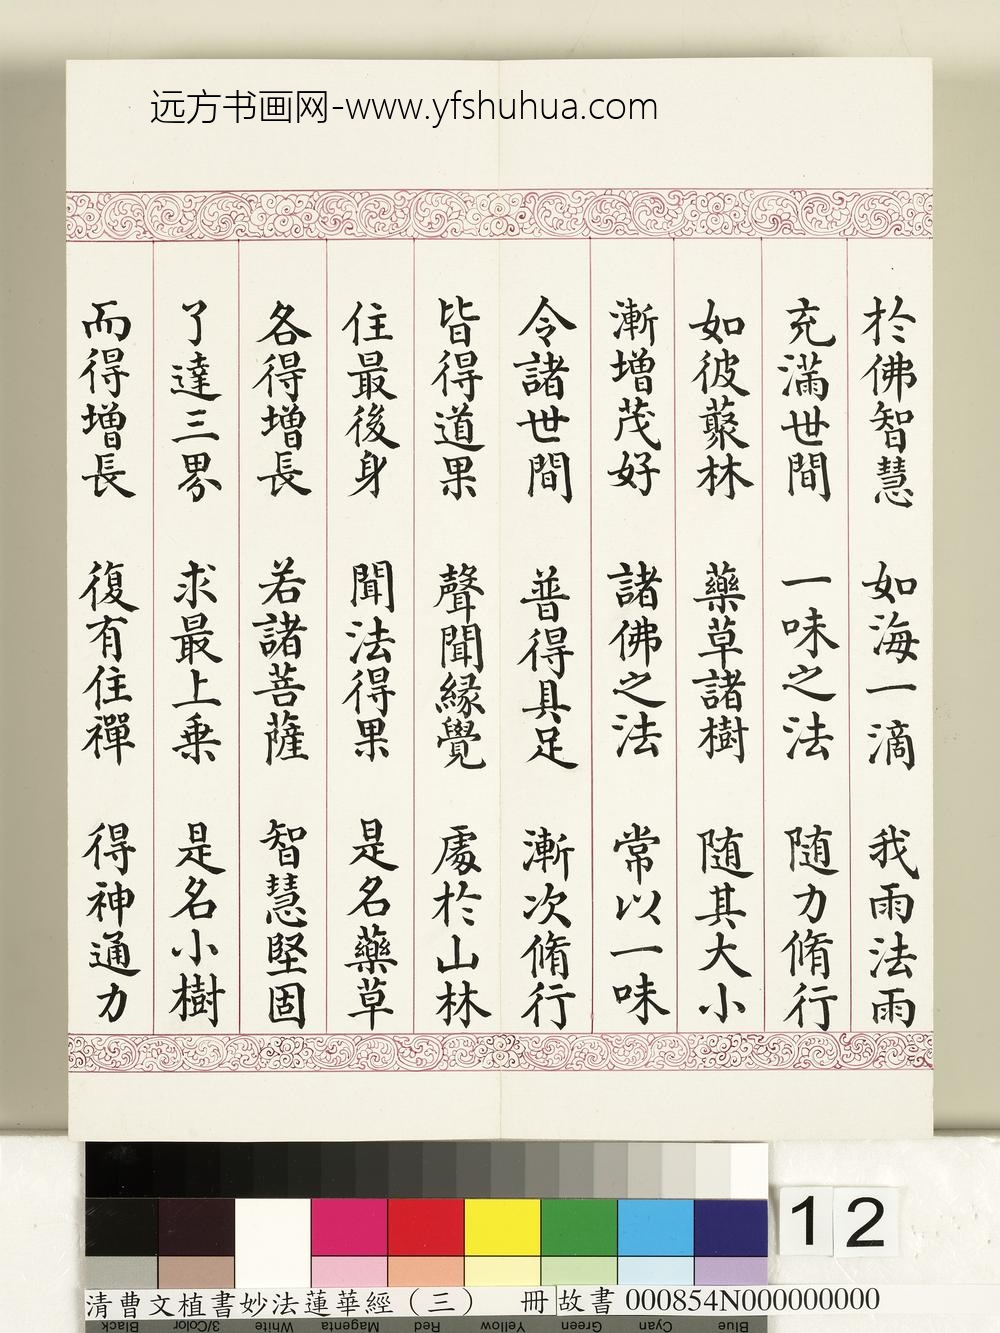 远方书画网-www.yfshuhua.com
於佛智慧 如海一滴 我雨法雨
充滿世間 一味之法 随力脩行
如彼藂林 藥草諸樹 随其大小
漸增茂好 諸佛之法 常以一味
令諸世間 普得具足 漸次脩行
皆得道果 聲聞緣覺 處於山林
住最後身 聞法得果 是名藥草
各得增長 若諸菩薩 智慧堅固
了達三界 求最上乗 是名小樹
而得增長 復有住禪 得神通力
12
清曹文植書妙法蓮華經（三） 冊 故書 000854N000000000
Black 3/Color White Magenta Red Yellow Green Cyan Blue